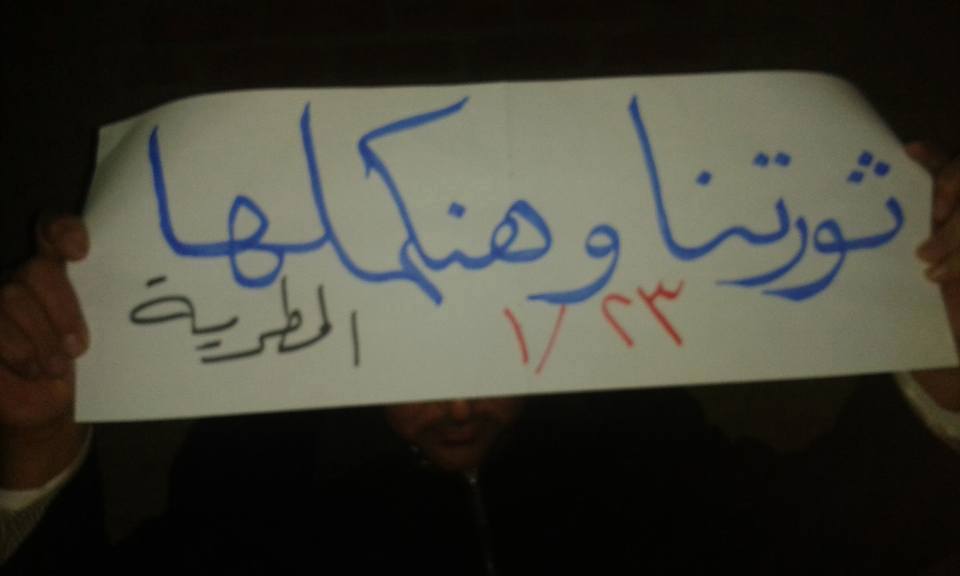 ثورتنا وهنكملها
٢٣/١
المطرية